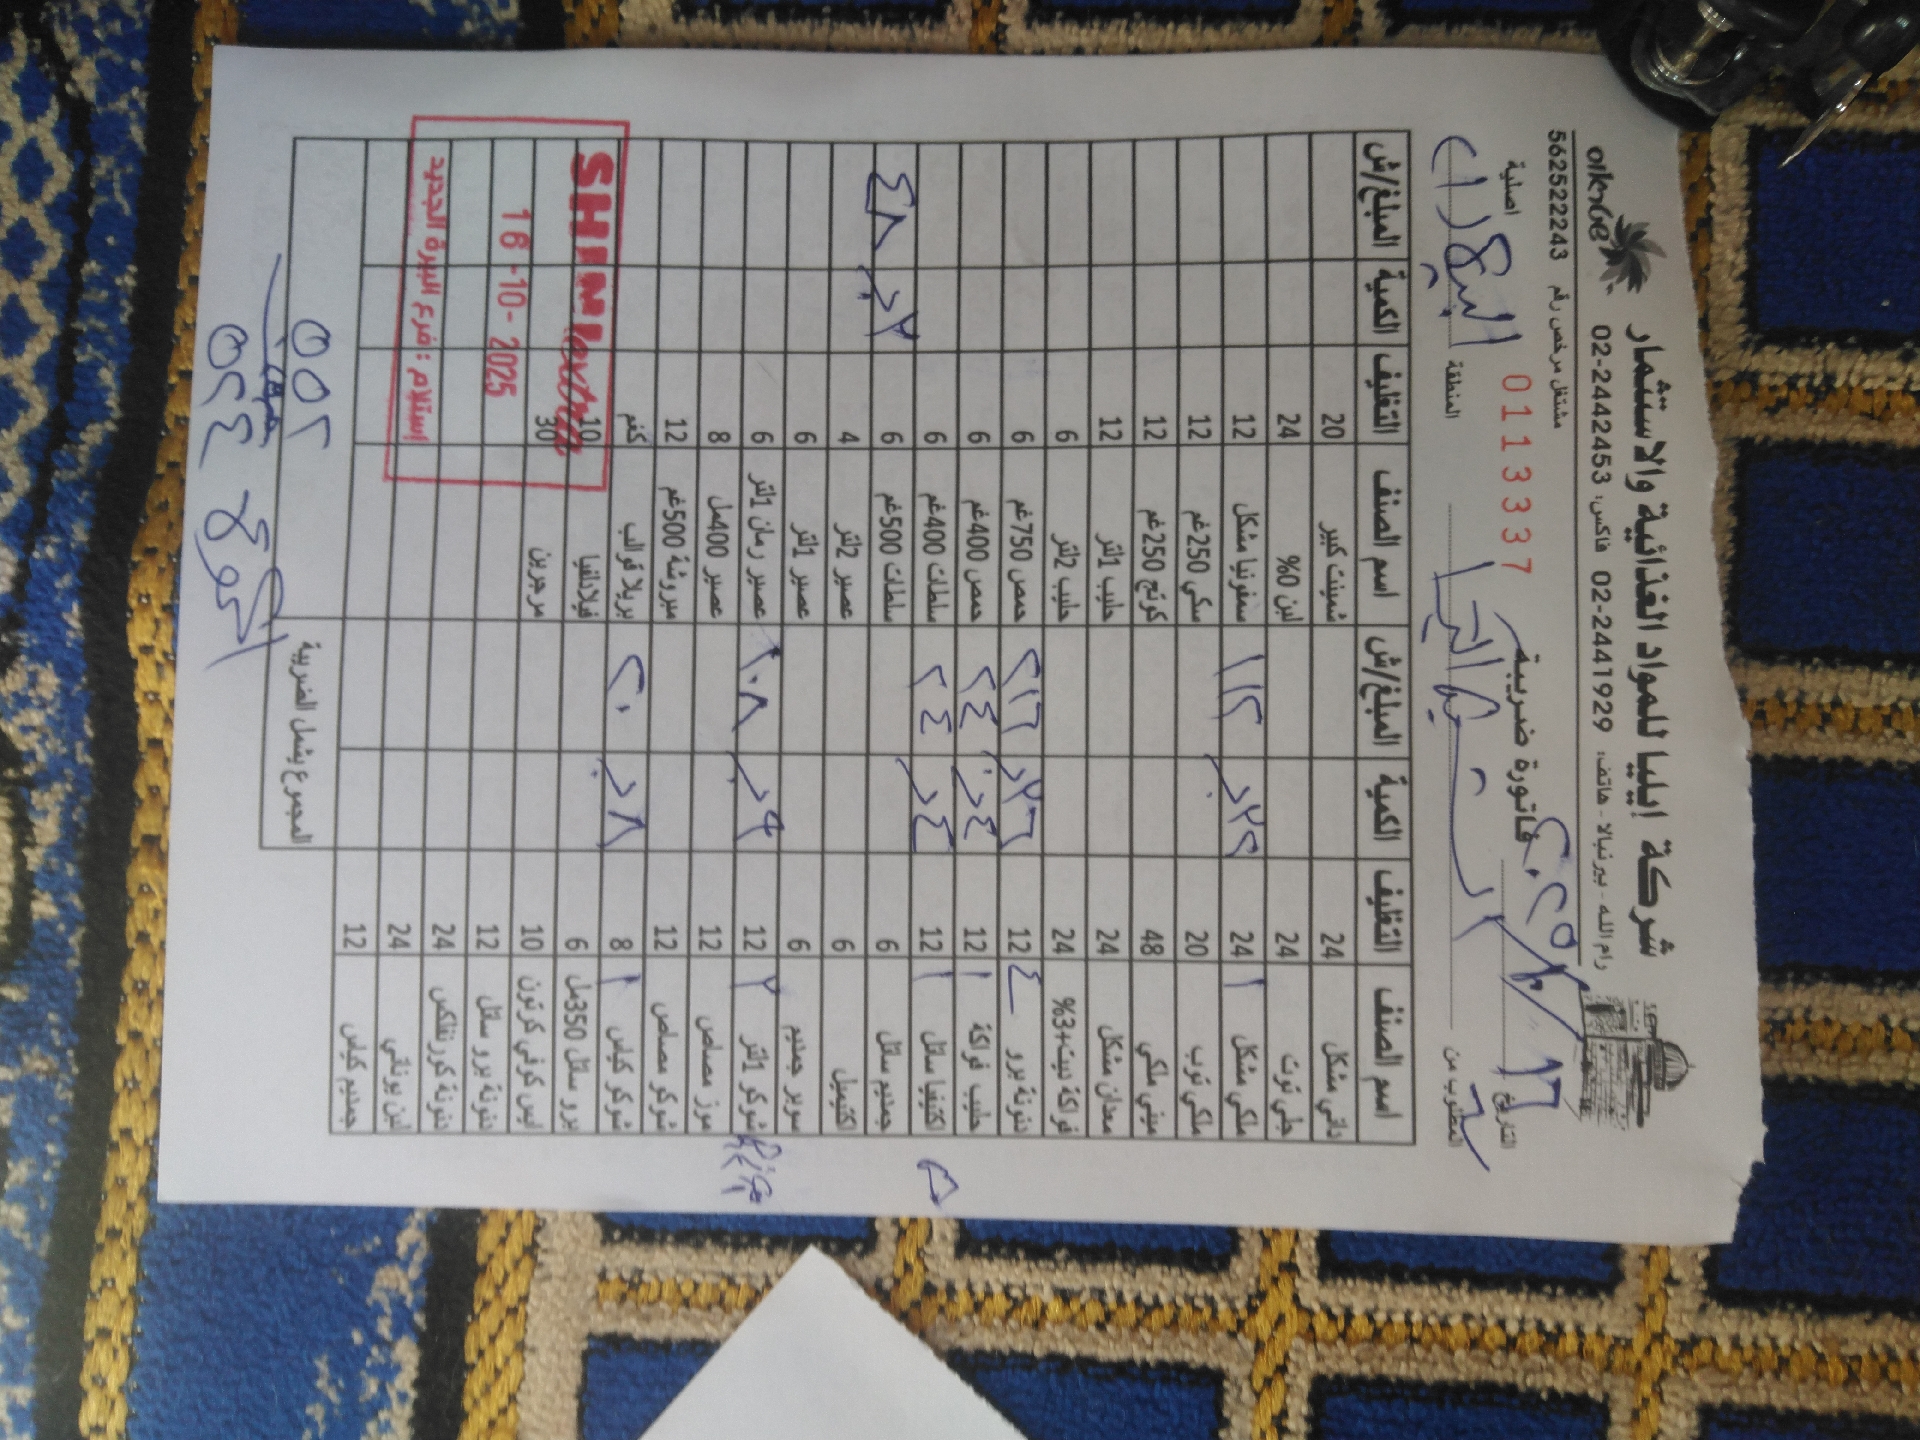 شركة ايليا للمواد الغذائية والاستثمار
رام الله - بيرنبالا - هاتف: 02-2441929 فاكس: 02-2442453
مشتغل مرخص رقم 562522243
فاتورة ضريبية
011337
اصلية
التاريخ ١٦ / ١٠ / ٢٠٢٥
المطلوب من
المنطقة
اسم الصنف التغليف الكمية المبلغ/ش اسم الصنف التغليف الكمية المبلغ/ش
داني مشكل 24 شمينت كبير 20
جلي توت 24 لبن 0% 24
ملكي مشكل ١ 24 ١١٢ سمفونيا مشكل 12
ملكي توب 20 سكي 250غم 12
ميني ملكي 48 كوتج 250غم 12
معدان مشكل 24 حليب 1لتر 12
فواكة بيت+3% 24 حليب 2لتر 6
دنونة برو ٤ 12 ٢١٦ حمص 750غم 6
حليب فواكة ١ 12 ٢٤ حمص 400غم 6
اكتيفيا سائل ١ 12 ٢٤ سلطات 400غم 6
جمديم سائل 6 سلطات 500غم 6 ٤٨
اكتيميل 6 عصير 2لتر 4
سوبر جمديم 6 عصير 1لتر 6
شوكو 1لتر ٢ 12 ١٠٨ عصير رمان 1لتر 6
موز مصاص 12 عصير 400مل 8
شوكو مصاص 12 مبروشة 500غم 12
شوكو كياس ١ 8 ٢٠ بريلا قوالب كغم
برو سائل 350مل 6 فيلادلفيا 10
ايس كوفي كرتون 10 مرجرين 30
دنونة برو سائل 12
دنونة كورنفلكس 24
لبن يوناني 24
جمديم كياس 12
المجموع يشمل الضريبة ٥٥٢
SHINI extra
16-10-2025
استلام : فرع البيرة الجديد